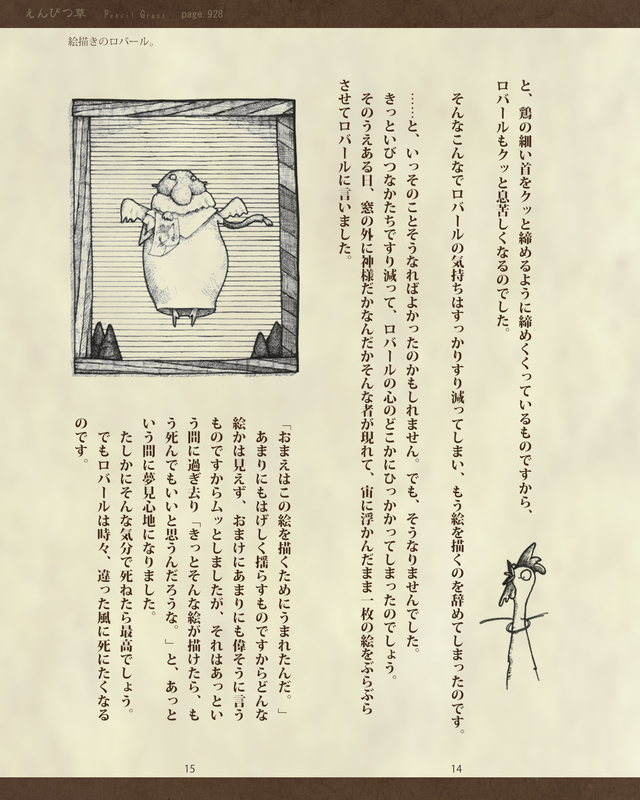 えんぴつ草 Pencil Grass page 928
絵描きのロバール。
と、鶏の細い首をクッと締めるように締めくくっているものですから、
ロバールもクッと息苦しくなるのでした。
そんなこんなでロバールの気持ちはすっかりすり減ってしまい、もう絵を描くのを辞めてしまったのです。
……と、いっそのことそうなればよかったのかもしれません。でも、そうなりませんでした。
きっといびつなかたちですり減って、ロバールの心のどこかにひっかかってしまったのでしょう。
そのうえある日、窓の外に神様だかなんだかそんな者が現れて、宙に浮かんだまま一枚の絵をぶらぶら
させてロバールに言いました。
14
「おまえはこの絵を描くためにうまれたんだ。」
あまりにもはげしく揺らすものですからどんな
絵かは見えず、おまけにあまりにも偉そうに言う
ものですからムッとしましたが、それはあっとい
う間に過ぎ去り「きっとそんな絵が描けたら、も
う死んでもいいと思うんだろうな。」と、あっと
いう間に夢見心地になりました。
たしかにそんな気分で死ねたら最高でしょう。
でもロバールは時々、違った風に死にたくなる
のです。
15